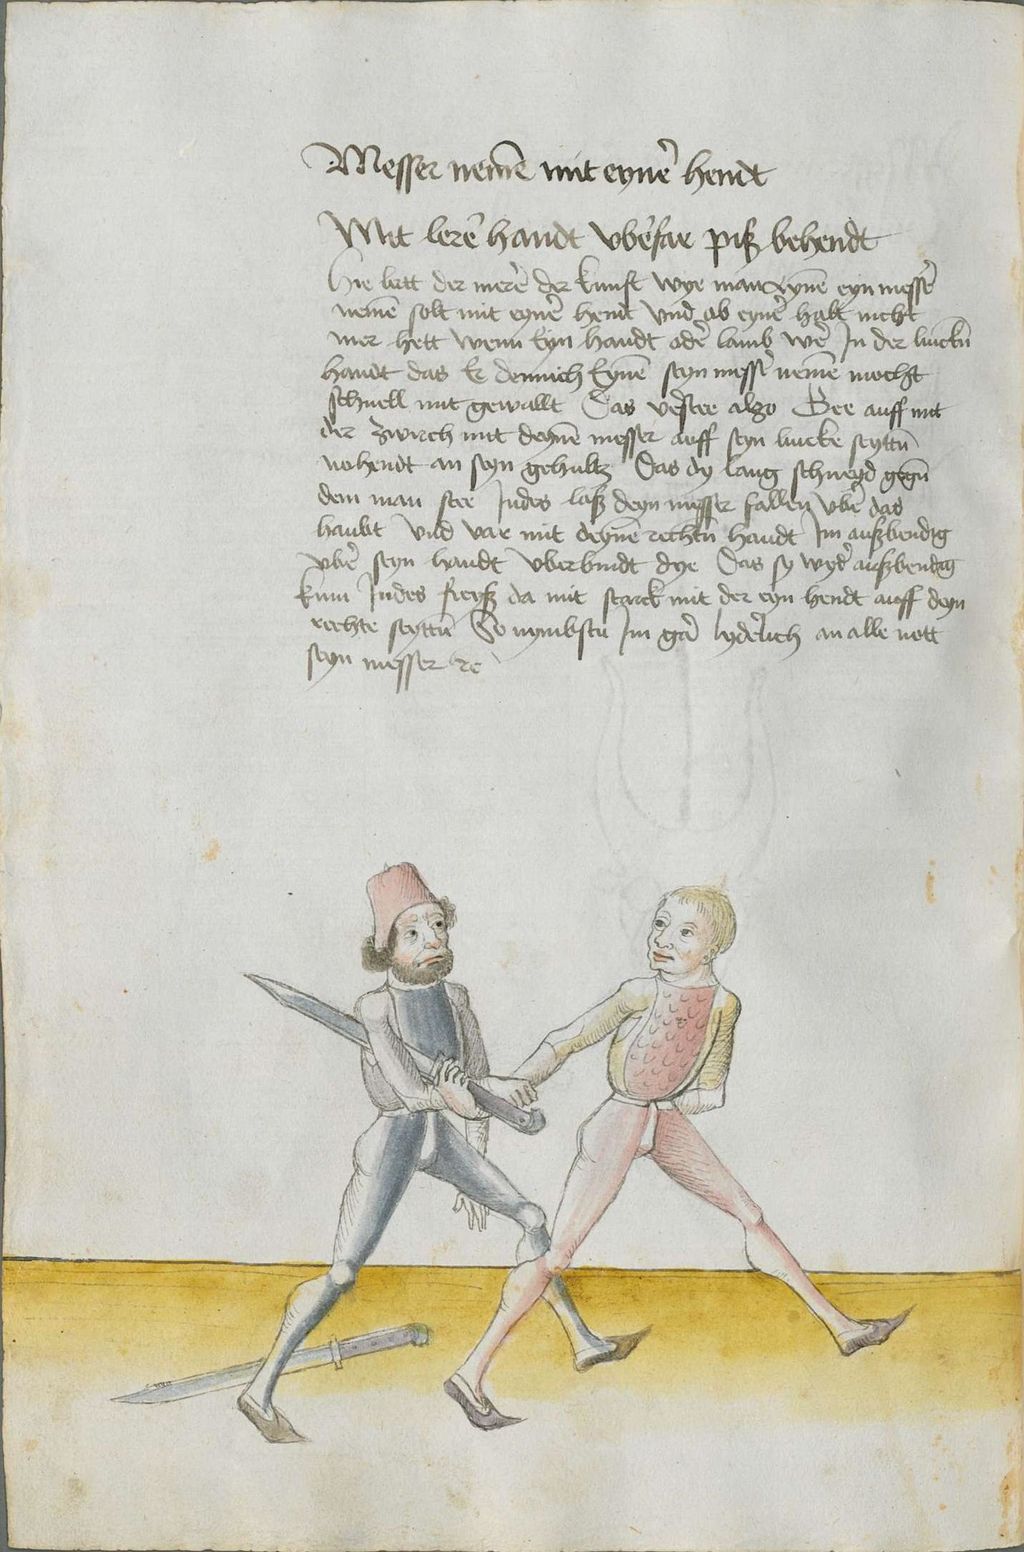 Messer nemē mit eynē hendt
Mit lerē handt vbēfar piß behendt
Hie lertt der merē der kunst wye man eynē eyn messē
nemē solt mit eynē hendt vnd ob eynē halt nicht
mer hett wenn Eyn handt odē lamb wē In der lincktn̄
handt das Er dennich Eynē seyn messē nemē mocht
schnell mit gewallt Das vēstee also Gee auff mit
der zwirch mit deynē messer auff seyn lincke seyttn̄
nohendt an seyn gehultz Das dy lang schneyd gegn̄
dem man stee Indes laß deyn messer fallen vbē das
haubt vnd var mit deynē rechtn̄ handt Im außbendig
vbē seyn handt vberbindt dye Das sy wydē außbendig
kum Indes Treyß da mit starck mit der eyn hendt auff deyn
rechte seyttn̄ So nymbstu Im gar lyderlich an alle nott
seyn messer